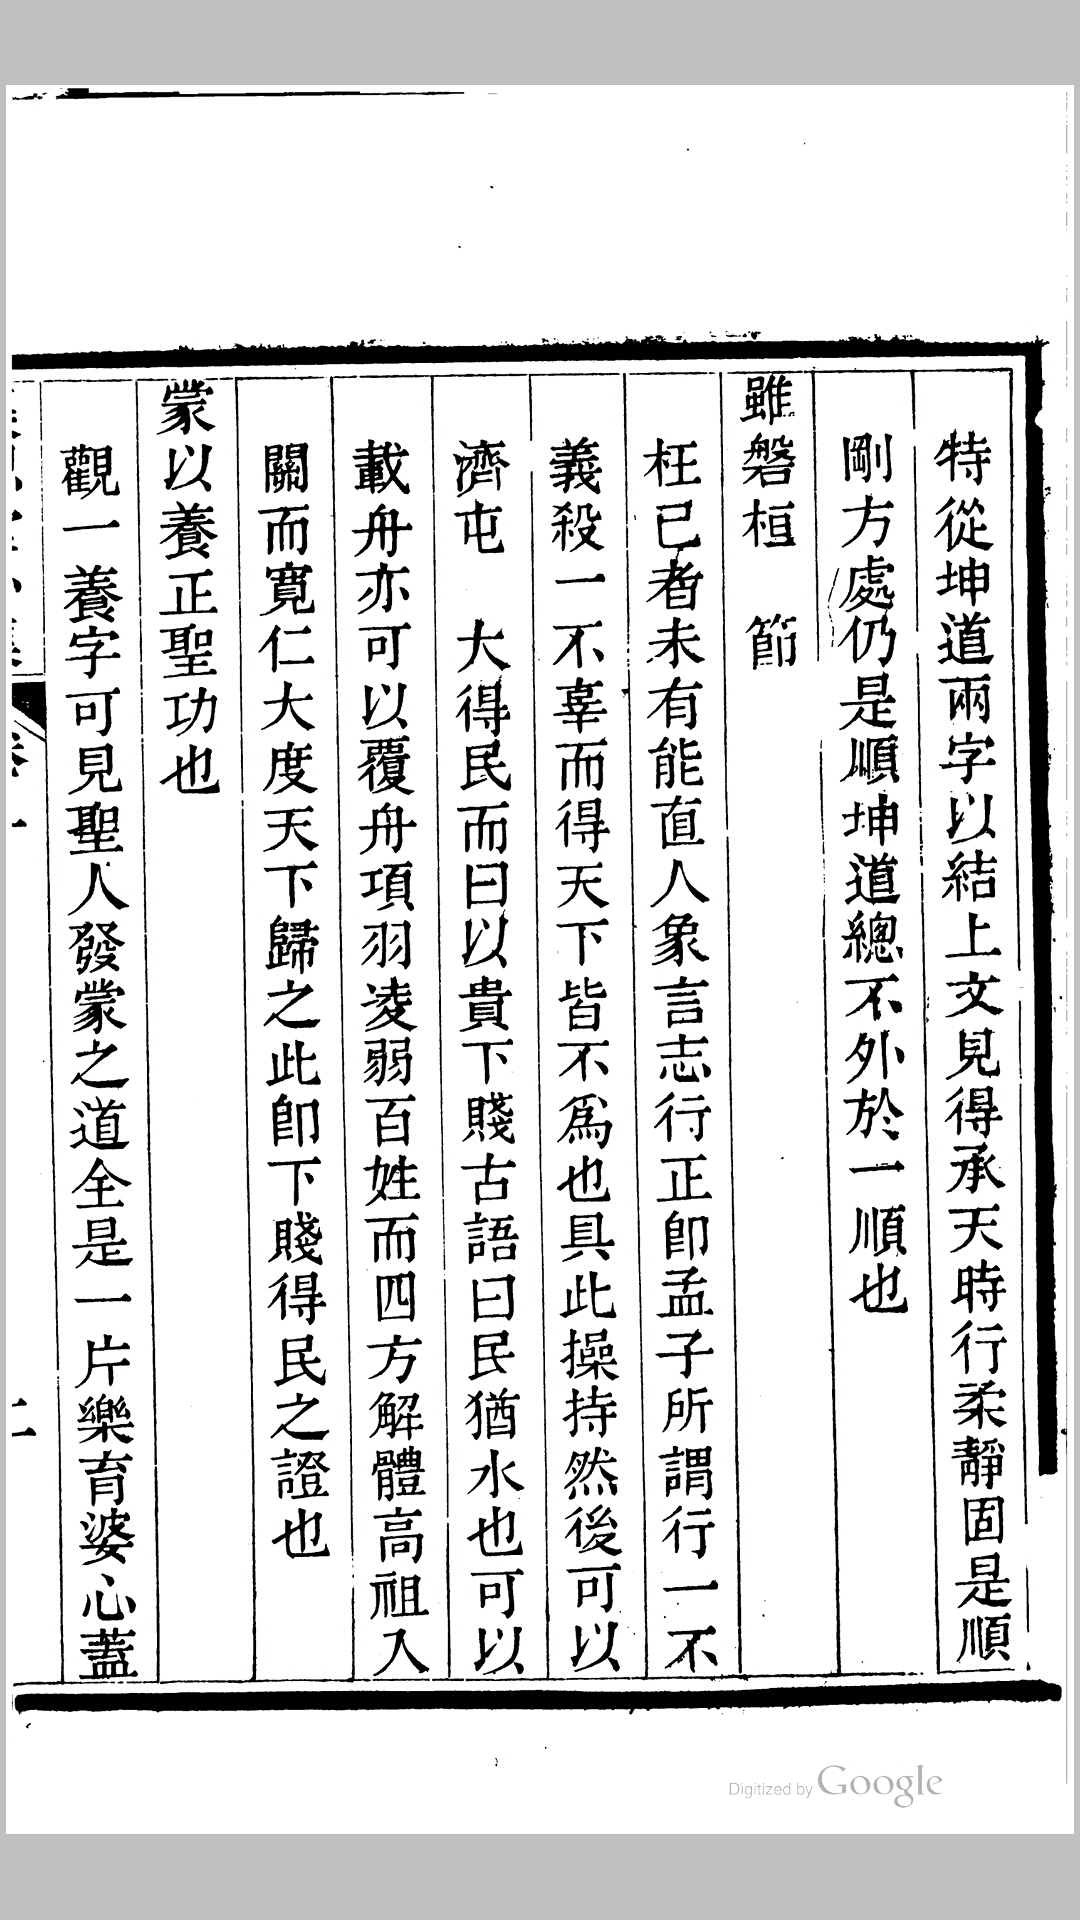 特從坤道兩字以結上文見得承天時行柔靜固是順
剛方處仍是順坤道總不外於一順也
雖磐桓 節
枉已者未有能直人象言志行正卽孟子所謂行一不
義殺一不辜而得天下皆不爲也具此操持然後可以
濟屯 大得民而曰以貴下賤古語曰民猶水也可以
載舟亦可以覆舟項羽凌弱百姓而四方解體高祖入
關而寬仁大度天下歸之此卽下賤得民之證也
蒙以養正聖功也
觀一養字可見聖人發蒙之道全是一片樂育婆心蓋
Digitized by Google